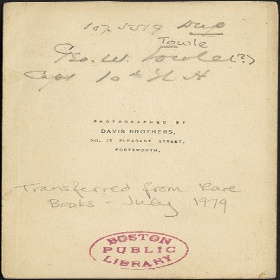 107.5519 Dup
Towle
Geo. W. Towle (?)
Capt 10th N.H
PHOTOGRAPHED BY
DAVIS BROTHERS,
NO. 15 PLEASANT STREET,
PORTSMOUTH.
Transferred from Rare
Books - July 1979
BOSTON
PUBLIC
LIBRARY